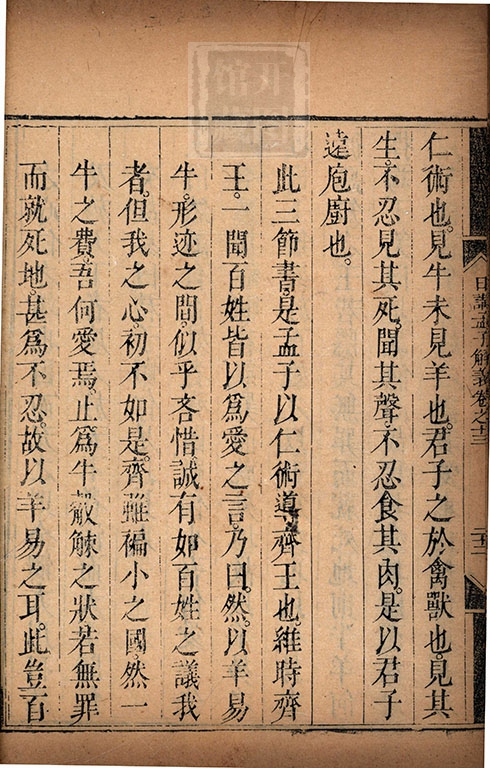 仁術也。見牛未見羊也。君子之於禽獸也。見其
生。不忍見其死。聞其聲。不忍食其肉。是以君子
遠庖廚也。
此三節書。是孟子以仁術導齊王也。維時齊
王。一聞百姓皆以為愛之言。乃曰。然。以羊易
牛。形迹之間。似乎吝惜。誠有如百姓之議我
者。但我之心。初不如是。齊雖褊小之國。然一
牛之費。吾何愛焉。止為牛觳觫之狀若無罪
而就死地。甚為不忍。故以羊易之耳。此豈百
日講孟子解義卷之十三